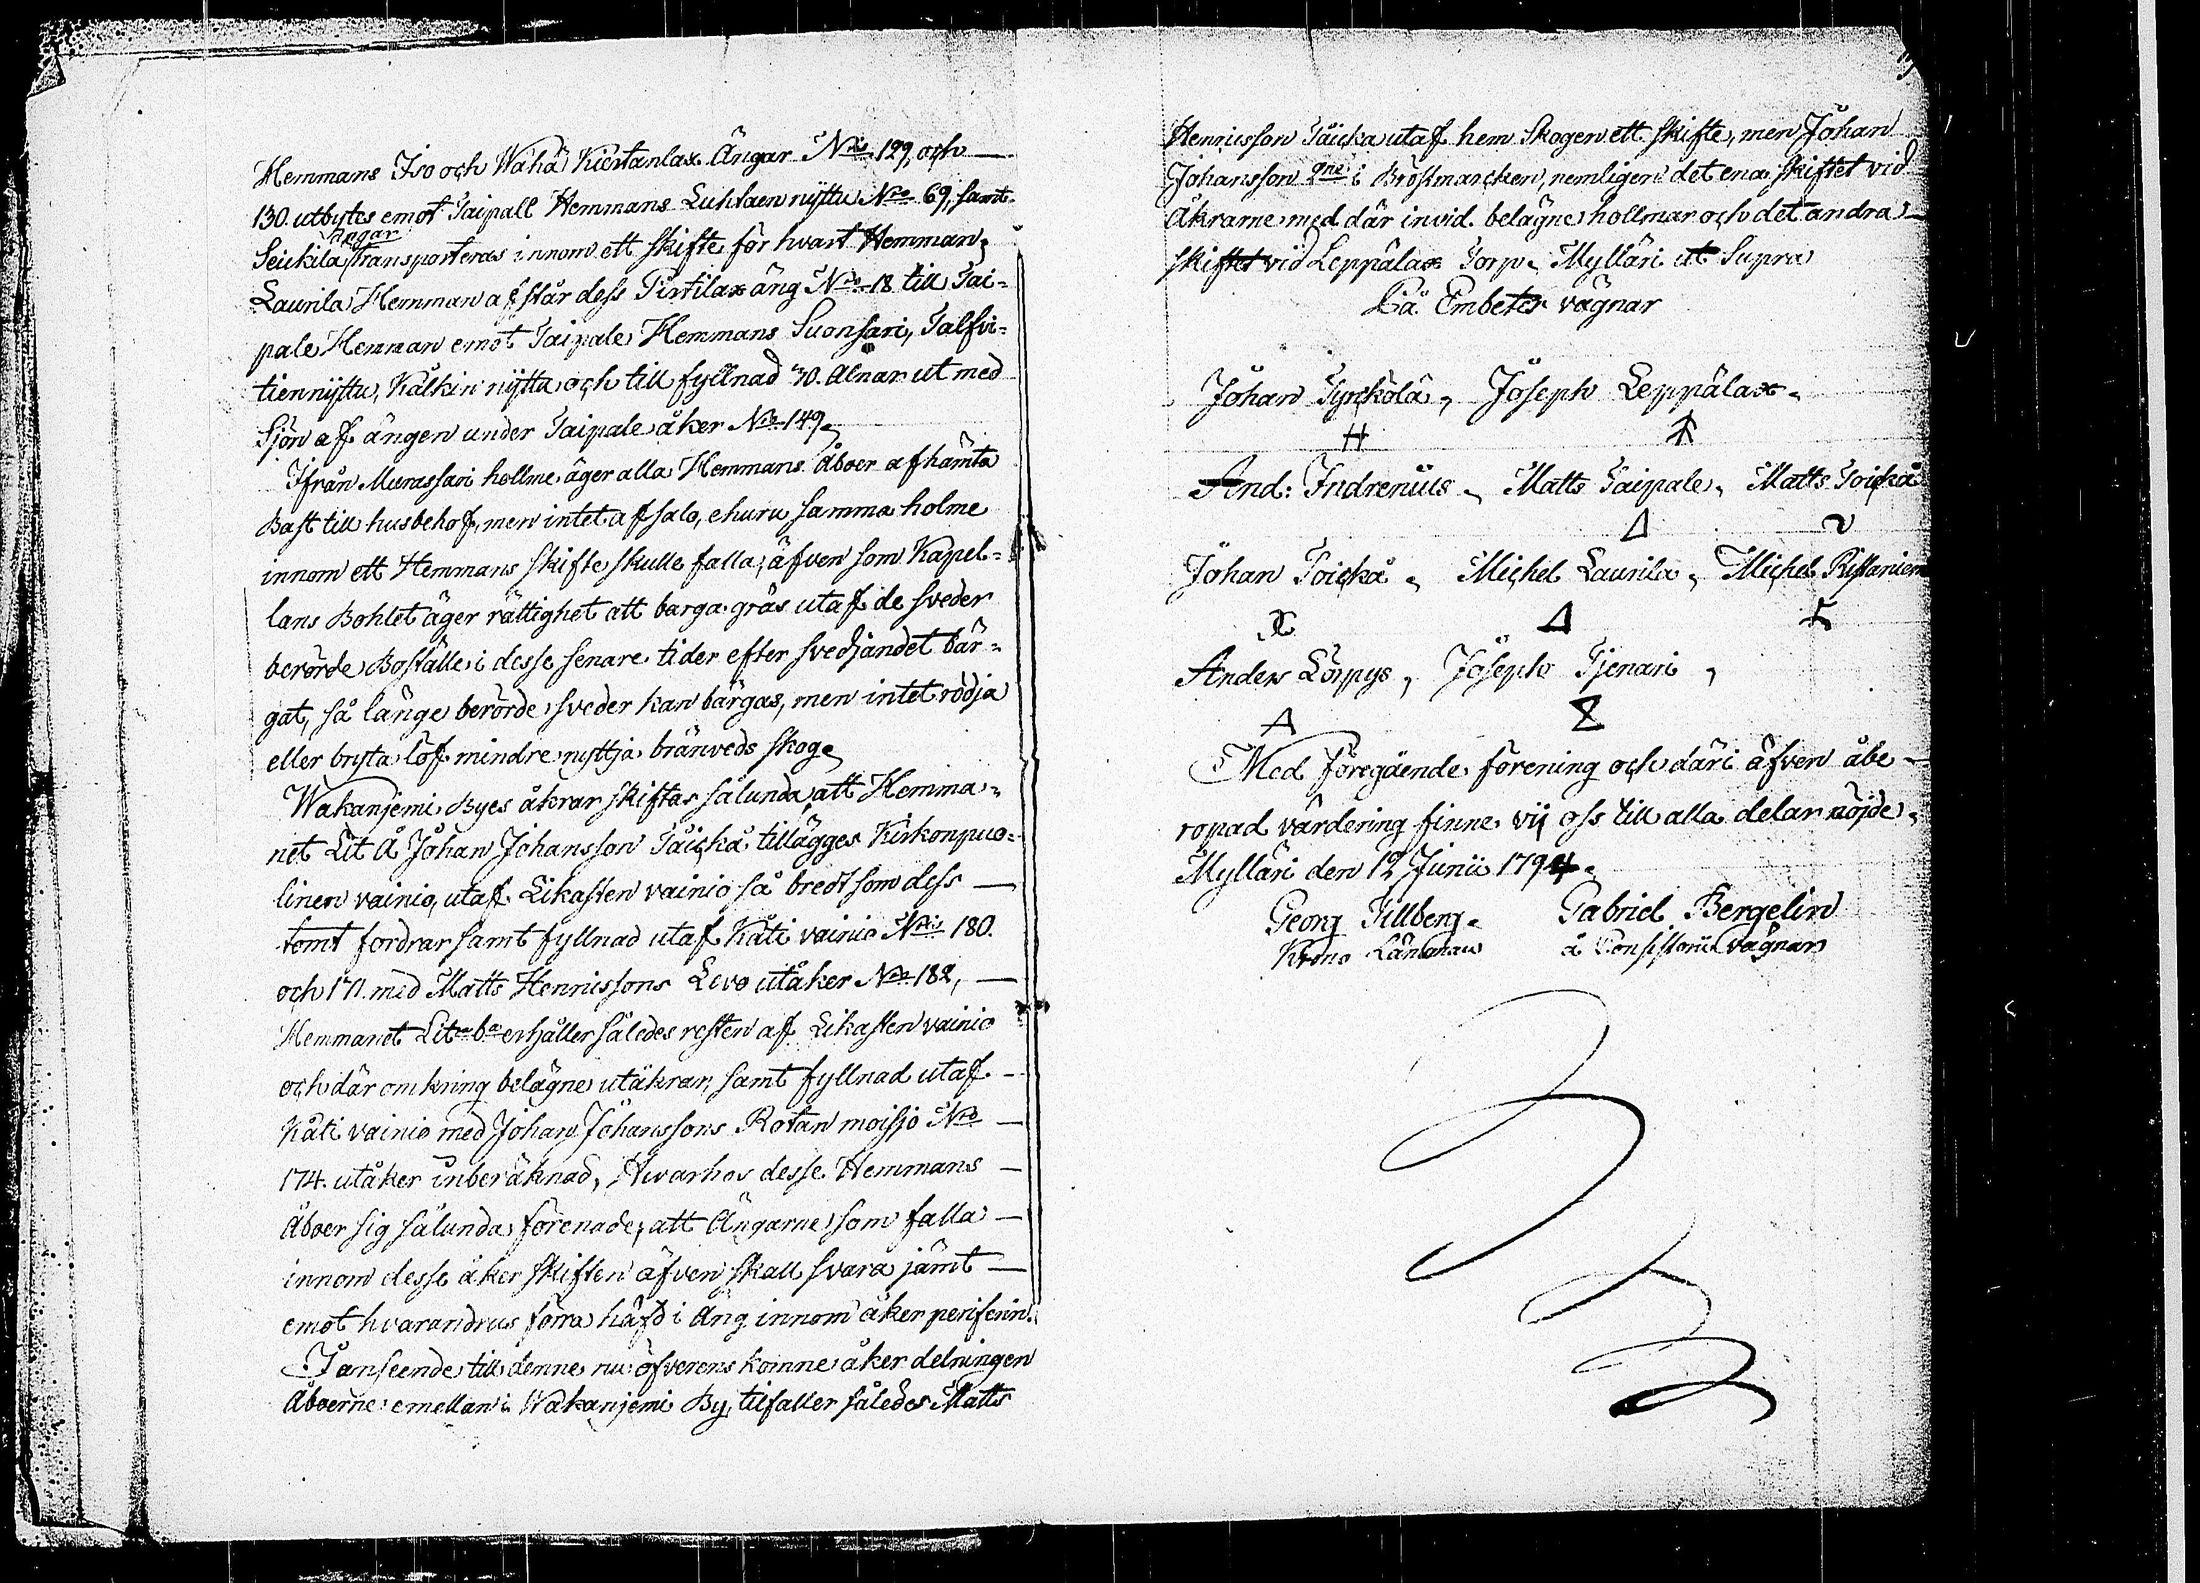 Hemmans Iso och Wähä Kiertanlax Ängar N:ris 129, och
130. utbytes emot Taipall Hemmans Luhtaen nijttu N:ro 69, samt
Ängar
Seickila transporteras innom ett skifte för hvart Hemman,
Laurila Hemman afstår dess Pirtilax äng N:ro 18 till Tai-
pale Hemman emot Taipale Hemmans Suonsari, Talfvi-
tiennijttu, Kälkin nijttu och till fyllnad 30. Alnar ut med
Sjön af ängen under Taipale åker N:ro 149.
Ifrån Murassari hollme äger alla Hemmans Åboer afhämta
Bast till husbehof, men intet af salo, ehuru samma holme
innom ett Hemmans skifte skulle falla, äfven som Kapel-
lans Bohlet äger rättighet att barga gräs utaf de sveder
berörde Boställe i desse senare tider efter svedjandet bär-
gat, så länge berörde sveder kan bärgas, men intet rödja
eller bryta löf mindre nyttja bränveds skog.
Wakanjemi Byes åkrar skiftas sålunda att Hemma-
net Lit A Johan Johansson Täickä tillägges Kirkonpuo-
linen vainio, utaf Likasten vainio så bredt som dess
tomt fordrar samt fyllnad utaf Käti vainio N:ris 180.
och 171. med Matts Henricssons Levo utåker N:ro 182,
Hemmanet Lit:a b:a erhåller således resten af Likasten vainio
och där omkring belägne utåkrar, samt fyllnad utaf
Käti vainio med Johan Johanssons Rotan moisjo N:ro
174. utåker inberäknad, Hvarhos desse Hemmans
Åboer sig sålunda förenade, att Ängarne som falla
innom desse åker skiften äfven skall svara jämt
emot hvarandras förra häfd i Äng innom åker periferin.
I anseende till denne nu öfverens komne åker delningen
Åboerne emellan i Wakanjemi By, tilfaller således Matts
Henricsson Täicka utaf hem Skogen ett skifte, men Johan
Johansson 2:ne i Bröstmarcken, nemligen det ena skiftet vid
Åkrarne med där invid belägne hollmar och det andra
skiftet vid Leppälax Torp. Mylläri ut Supra
På Embetes vägnar
Johan Tynkölä, Joseph Leppälax.
And: Indrenius, Matts Taipale, Matts Toickä
Johan Toickä, Michel Laurila, Michel Ristaniemi
Anders Lörpys, Joseph Tjenari,
Med föregående förening och däri äfven åbe-
ropad värdering finne vij oss till alla delar nöjde,
Mylläri den 12 Junii 1794.
Georg Tillberg. Gabriel Bergelin
Krono Länsman å Consistorii vägnar